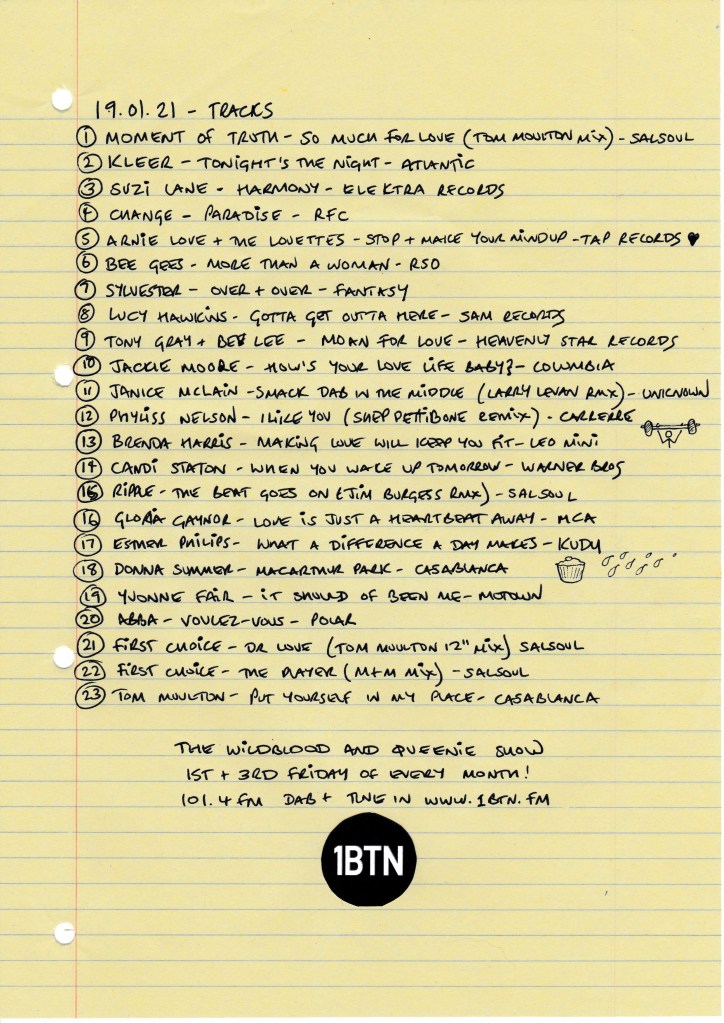 19.01.21 - TRACKS
1 MOMENT OF TRUTH - SO MUCH FOR LOVE (TOM MOULTON MIX) - SALSOUL
2 KLEER - TONIGHT'S THE NIGHT - ATLANTIC
3 SUZI LANE - HARMONY - ELEKTRA RECORDS
4 CHANGE - PARADISE - RFC
5 ARNIE LOVE + THE LOVETTES - STOP + MAKE YOUR MIND UP - TAP RECORDS ♥
6 BEE GEES - MORE THAN A WOMAN - RSO
7 SYLVESTER - OVER + OVER - FANTASY
8 LUCY HAWKINS - GOTTA GET OUTTA HERE - SAM RECORDS
9 TONY GRAY + BEE LEE - MOAN FOR LOVE - HEAVENLY STAR RECORDS
10 JACKIE MOORE - HOW'S YOUR LOVE LIFE BABY? - COLUMBIA
11 JANICE MCLAIN - SMACK DAB IN THE MIDDLE (LARRY LEVAN RMX) - UNKNOWN
12 PHYLISS NELSON - I LIKE YOU (SHEP PETTIBONE REMIX) - CARRERRE
13 BRENDA HARRIS - MAKING LOVE WILL KEEP YOU FIT - LEO MINI
14 CANDI STATON - WHEN YOU WAKE UP TOMORROW - WARNER BROS
15 RIPPLE - THE BEAT GOES ON (JIM BURGESS RMX) - SALSOUL
16 GLORIA GAYNOR - LOVE IS JUST A HEARTBEAT AWAY - MCA
17 ESTHER PHILIPS - WHAT A DIFFERENCE A DAY MAKES - KUDU
18 DONNA SUMMER - MACARTHUR PARK - CASABLANCA
19 YVONNE FAIR - IT SHOULD OF BEEN ME - MOTOWN
20 ABBA - VOULEZ-VOUS - POLAR
21 FIRST CHOICE - DR LOVE (TOM MOULTON 12" MIX) SALSOUL
22 FIRST CHOICE - THE PLAYER (M+M MIX) - SALSOUL
23 TOM MOULTON - PUT YOURSELF IN MY PLACE - CASABLANCA
THE WILDBLOOD AND QUEENIE SHOW
1ST + 3RD FRIDAY OF EVERY MONTH!
101.4 FM DAB + TUNE IN WWW.1BTN.FM
1BTN